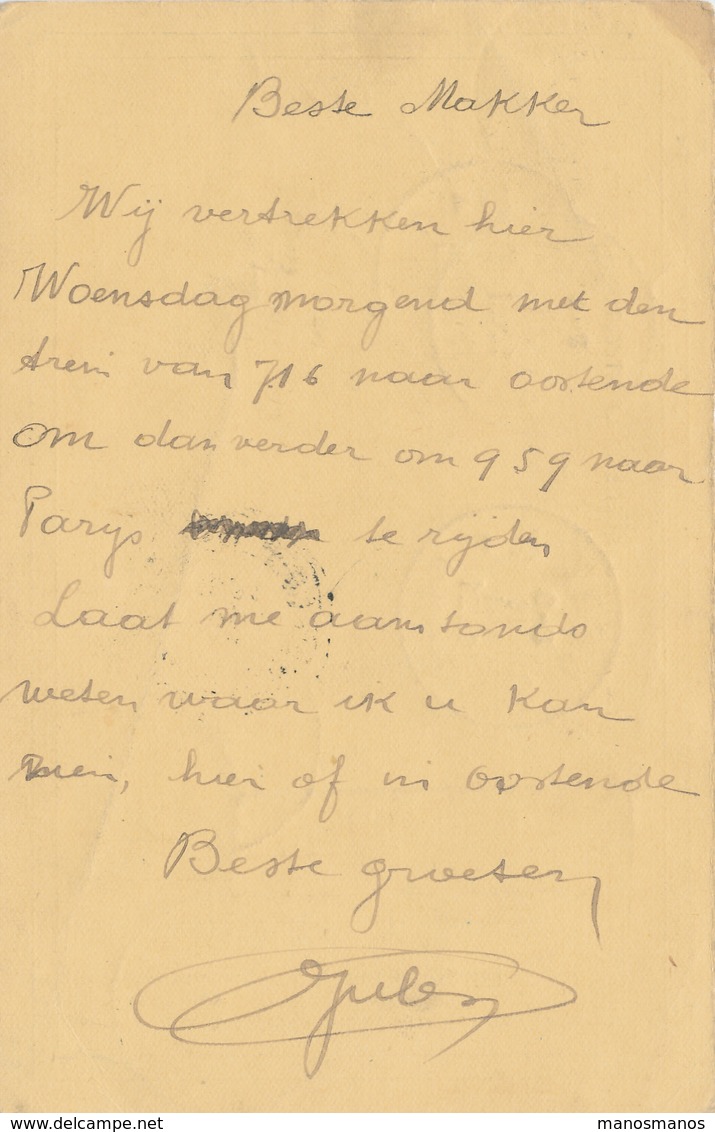 Beste Makker
Wij vertrekken hier
Woensdag morgend met den
trein van 716 naar oostende
om dan verder om 9 59 naar
Parys te rijden
Laat me aanstonds
weten waar ik u kan
zien, hier of in Oostende
Beste groeten
Jules
www.delcampe.net
manosmanos